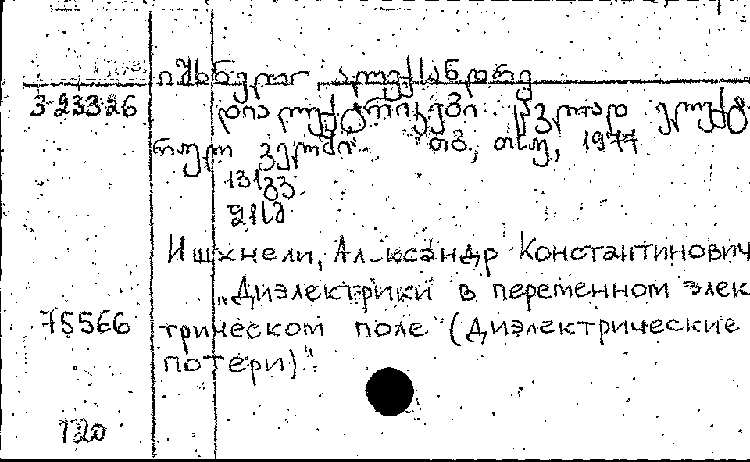 იშხნელი ალექსანდრე
3-23326 დიალექტრიკები ცვლად ელექტ
რულ ველში. თბ., თსუ, 1977
131გვ.
21სმ
Ишхнели, Александр Константинович
„Диэлектрики в переменном элек
75566 трическом поле (диэлектрические
потери)".
120